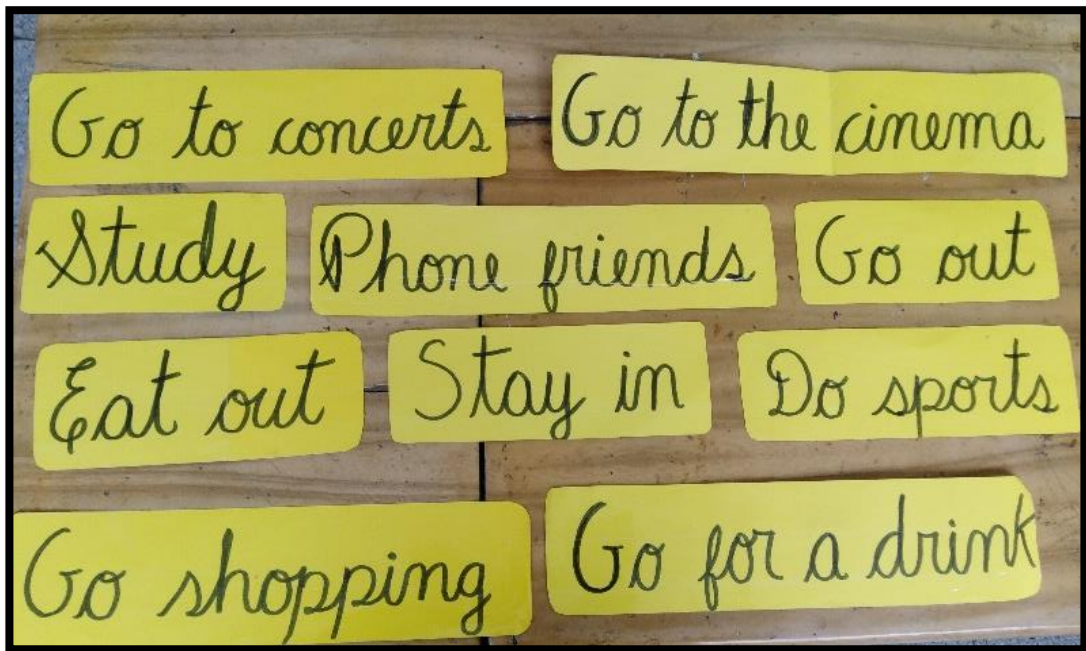 Go to concerts
Go to the cinema
Study
Phone friends
Go out
Eat out
Stay in
Do sports
Go shopping
Go for a drink